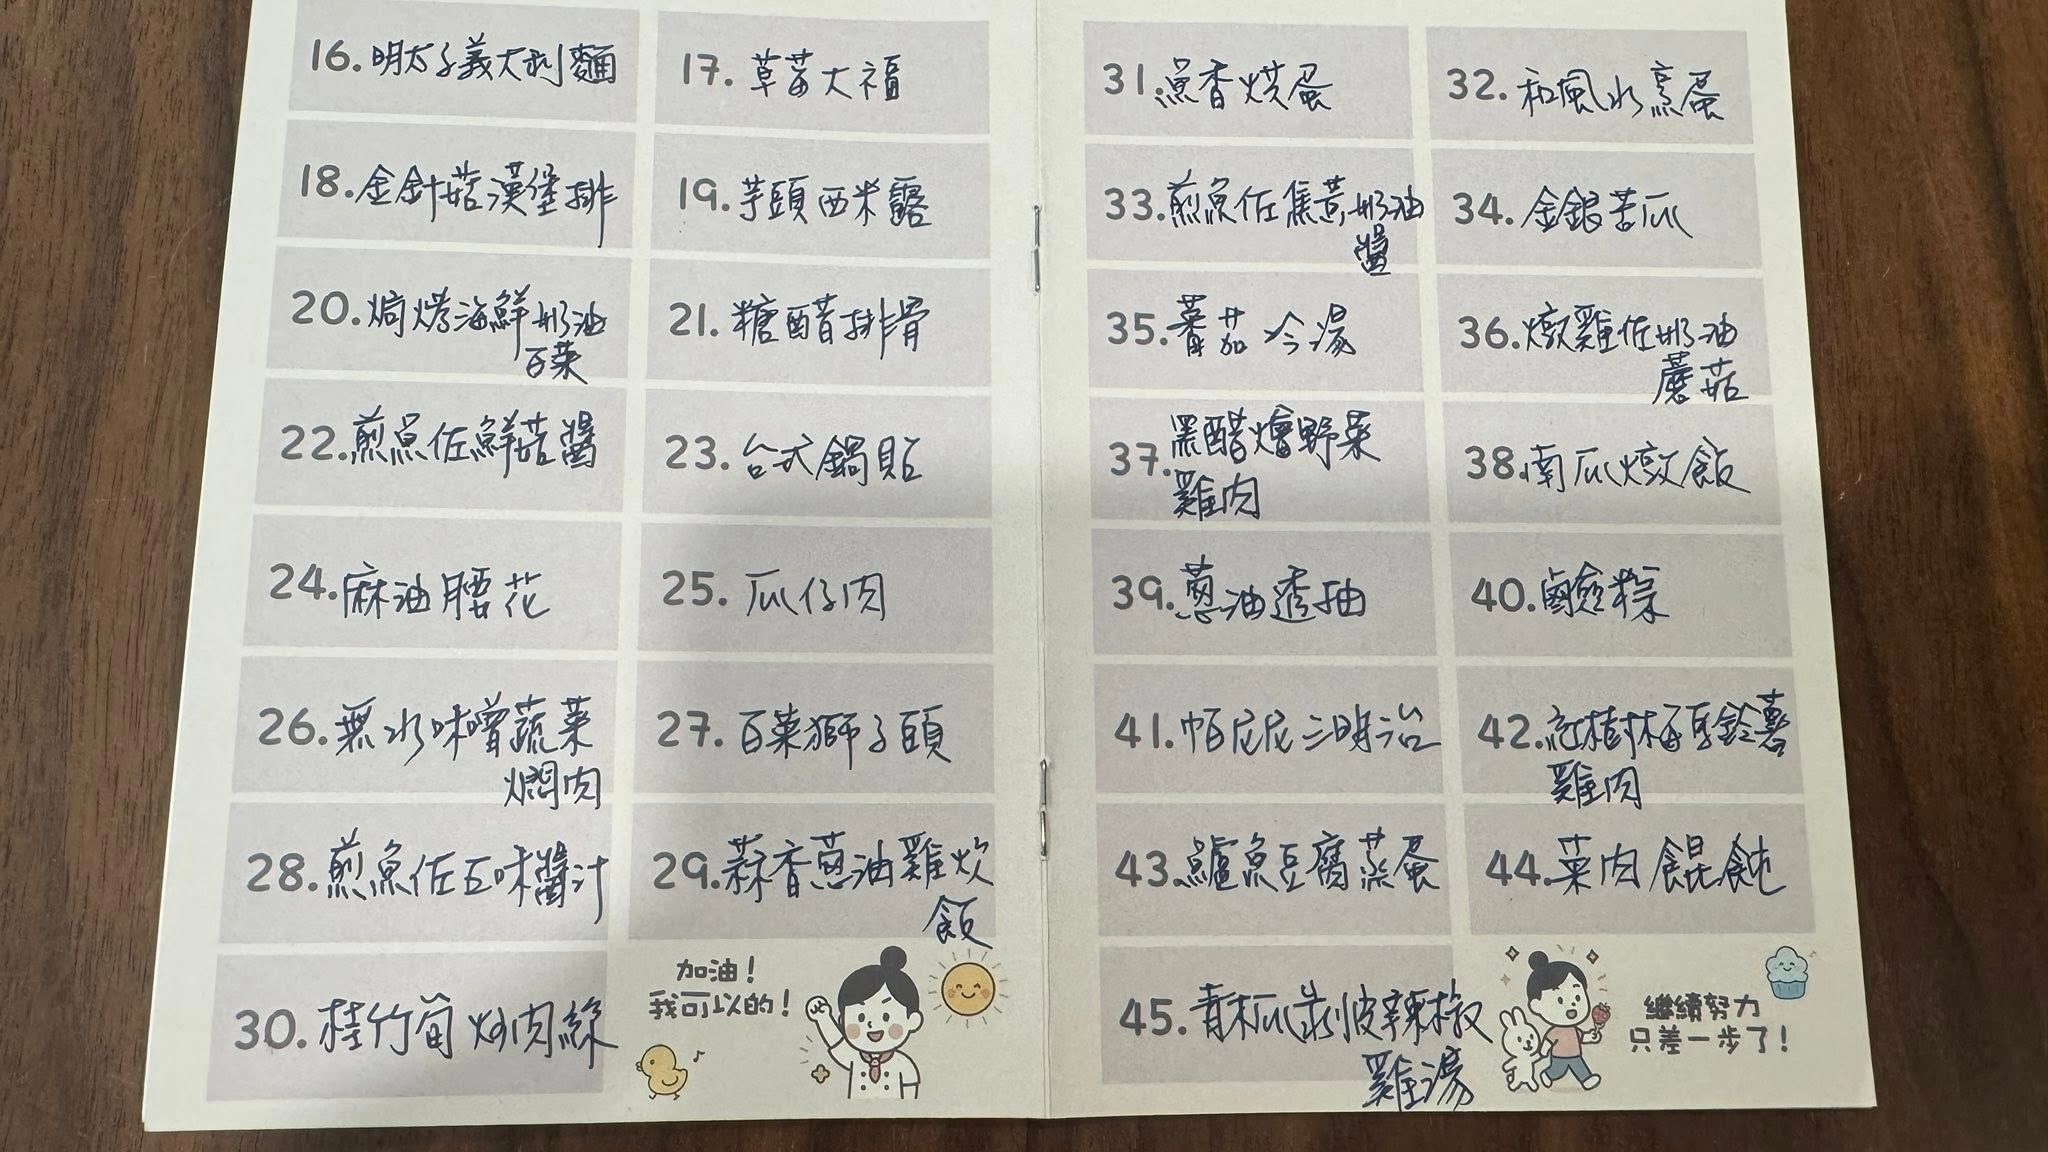 16. 明太子義大利麵
17. 草莓大福
18. 金針菇漢堡排
19. 芋頭西米露
20. 焗烤海鮮奶油
白菜
21. 糖醋排骨
22. 煎魚佐鮮菇醬
23. 台式鍋貼
24. 麻油腰花
25. 瓜仔肉
26. 無水味噌蔬菜
燜肉
27. 白菜獅子頭
28. 煎魚佐五味醬汁
29. 蒜香蔥油雞炊
飯
30. 桂竹筍炒肉絲
加油!
我可以的!
31. 魚香烘蛋
32. 和風水烹蛋
33. 煎魚佐焦芝奶油
醬
34. 金銀苦瓜
35. 蕃茄冷湯
36. 燉雞佐奶油
蘑菇
37. 黑醋燴野菜
雞肉
38. 南瓜燉飯
39. 蔥油透抽
40. 鹼粽
41. 帕尼尼三明治
42. 紅樹梅馬鈴薯
雞肉
43. 鱸魚豆腐蒸蛋
44. 菜肉餛飩
45. 青木瓜剝皮辣椒
雞湯
繼續努力
只差一步了!